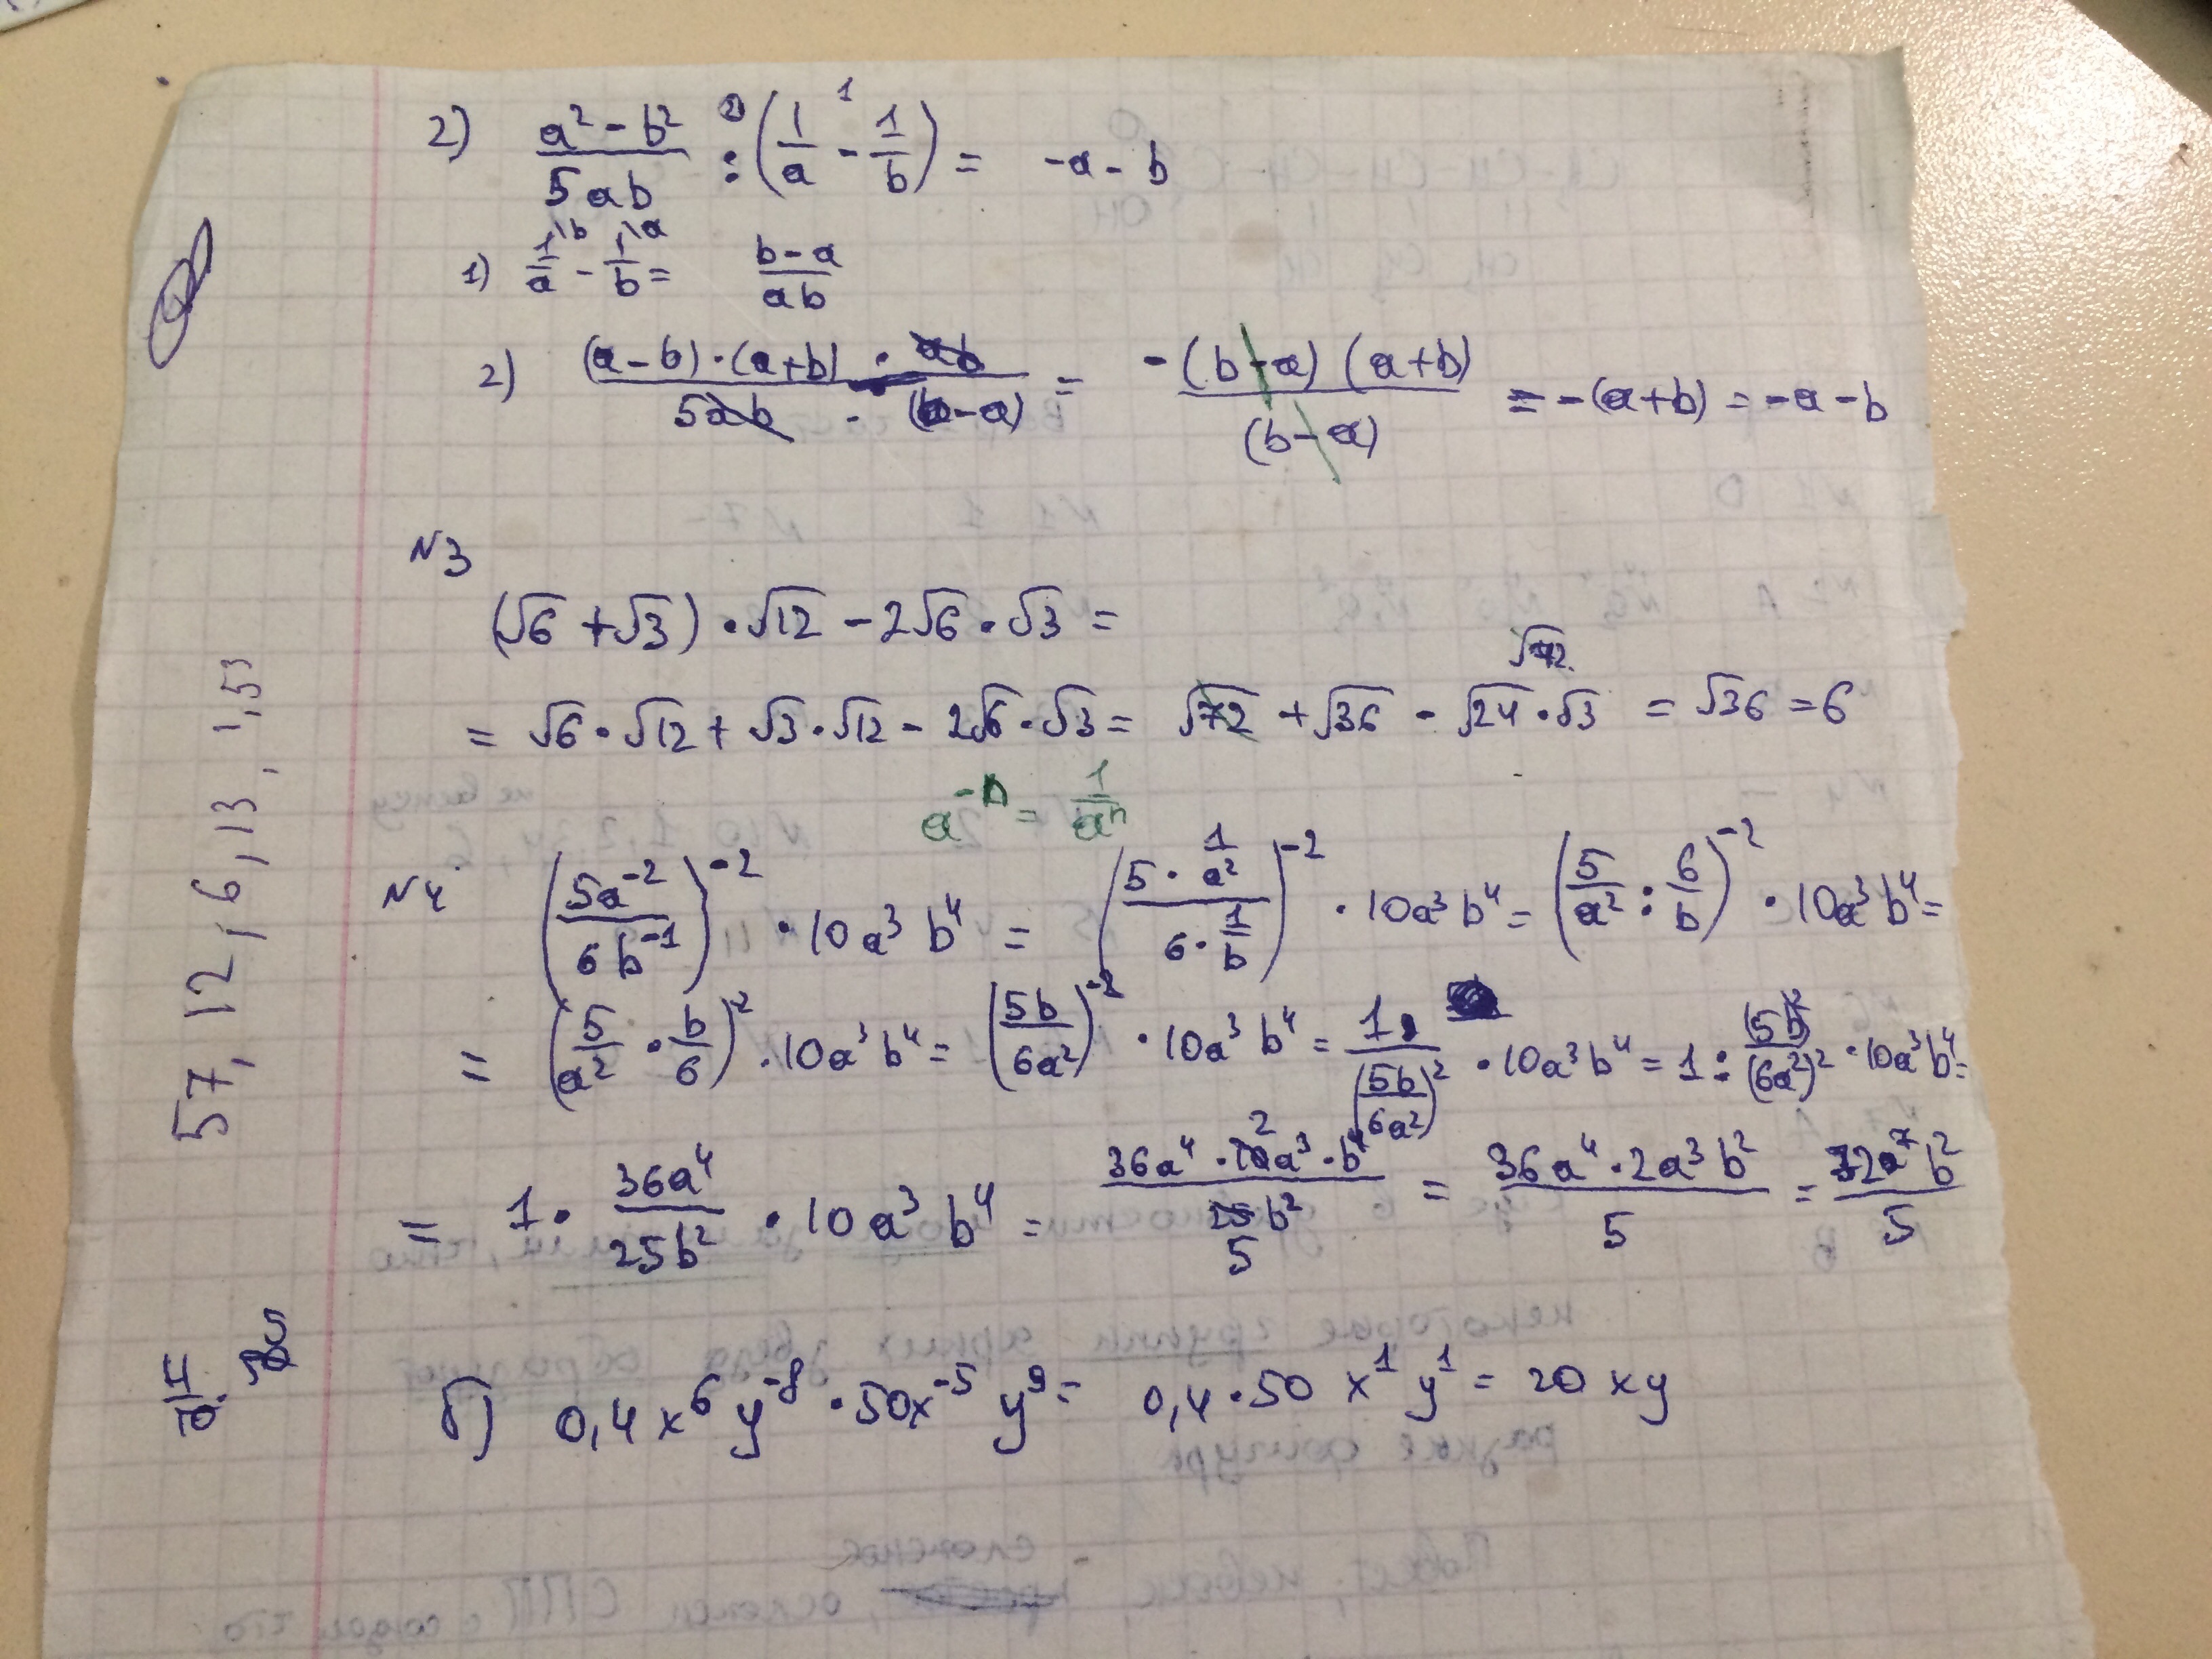 2) (a² - b²)/(5ab) : (1/a - 1/b) = -a - b
1) 1/a - 1/b = (b-a)/(ab)
2) ((a-b)·(a+b)·ab)/(5ab·(b-a)) = (-(b-a)(a+b))/(b-a) = -(a+b) = -a-b
N3
(√6 + √3)·√12 - 2√6·√3 =
√72
= √6·√12 + √3·√12 - 2√6·√3 = √72 + √36 - √24·√3 = √36 = 6
a⁻ⁿ = 1/aⁿ
N4 (5a⁻²/6b⁻¹)⁻² · 10a³b⁴ = ((5·1/a²)/(6·1/b))⁻² · 10a³b⁴ = (5/a² : 6/b)⁻² · 10a³b⁴ =
= (5/a² · b/6)⁻² · 10a³b⁴ = (5b/6a²)⁻² · 10a³b⁴ = 1/(5b/6a²)² · 10a³b⁴ = 1 : (5b)²/(6a²)² · 10a³b⁴ =
= 1 · 36a⁴/25b² · 10a³b⁴ = (36a⁴ · 10a³ · b⁴)/(25b²) = (36a⁴ · 2a³b²)/5 = 72a⁷b²/5
2
5
б) 0,4x⁶y⁻⁸ · 50x⁻⁵y⁹ = 0,4·50 x¹y¹ = 20xy
57, 12, 6, 13, 1,53
4/10 · 50
5